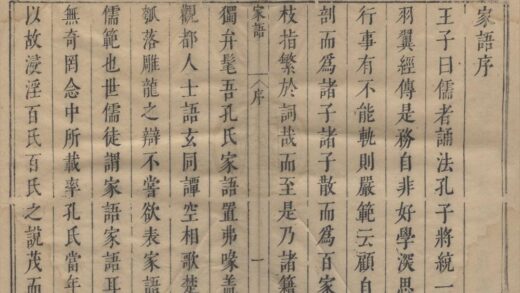 家語序
王子曰儒者誦法孔子將統一
羽翼經傳是務自非好學湥思
行事有不能軌則嚴範云顧自
剖而爲諸子諸子散而爲百家
枝指繁於詞哉而至是乃諸籍
家語 序 一
獨弁髦吾孔氏家語置弗喙盖
觀都人士語玄同譚空相歌楚
瓠落雕龍之辯不啻欲表家語
儒範也世儒徒謂家語家語耳
無奇罔念中所載率孔氏當年
以故浸淫百氏百氏之說茂而